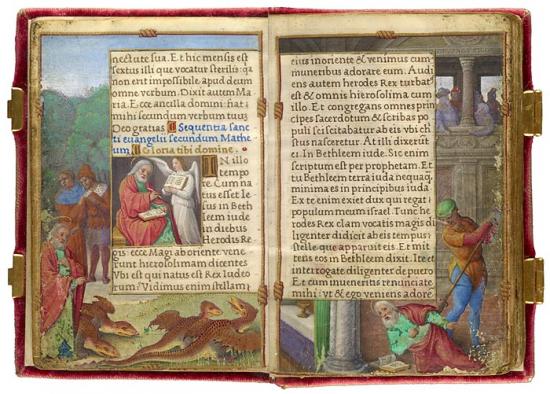 nestute sua. Et hic mensis est
sextus illi que vocatur sterilis: qa
non erit impossibile apud deum
omne verbum. Dixit autem Ma
ria. Ecce ancilla domini: fiat
mihi secundum verbum tuus
Deo gratias Sequentia sanc
ti evangelii secundum Mathe
um Gloria tibi domine.
IN illo
tempo
re Cum na
tus esset Ie
sus in Beth
leem iude
in diebus
Herodis Re
gis: ecce Magi ab oriente vene
runt hierosolimam dicentes
Vbi est qui natus est Rex iudeo
rum? Vidimus enim stellam
eius in oriente & venimus cum
muneribus adorare eum. Audi
ens autem herodes Rex turbat
est & omnis hierosolima cum
illo. Et congregans omnes prin
cipes sacerdotum & scribas po
puli sciscitabatur ab eis vbi ch
tus nasceretur. At illi dixerūt
ei. In Bethleem iude. Sic enim
scriptum est per prophetam. Et
tu Bethleem terra iuda nequaq
minima es in principibus iuda
Ex te enim exiet dux qui regat
populum meum israel. Tunc he
rodes Rex clam vocatis magis di
ligenter didicit ab eis tempus
stelle que apparuit eis. Et mit
tens eos in Bethleem dixit. Ite et
interrogate diligenter de puero
Et cum inueneritis renunciate
mihi: vt & ego veniens adore